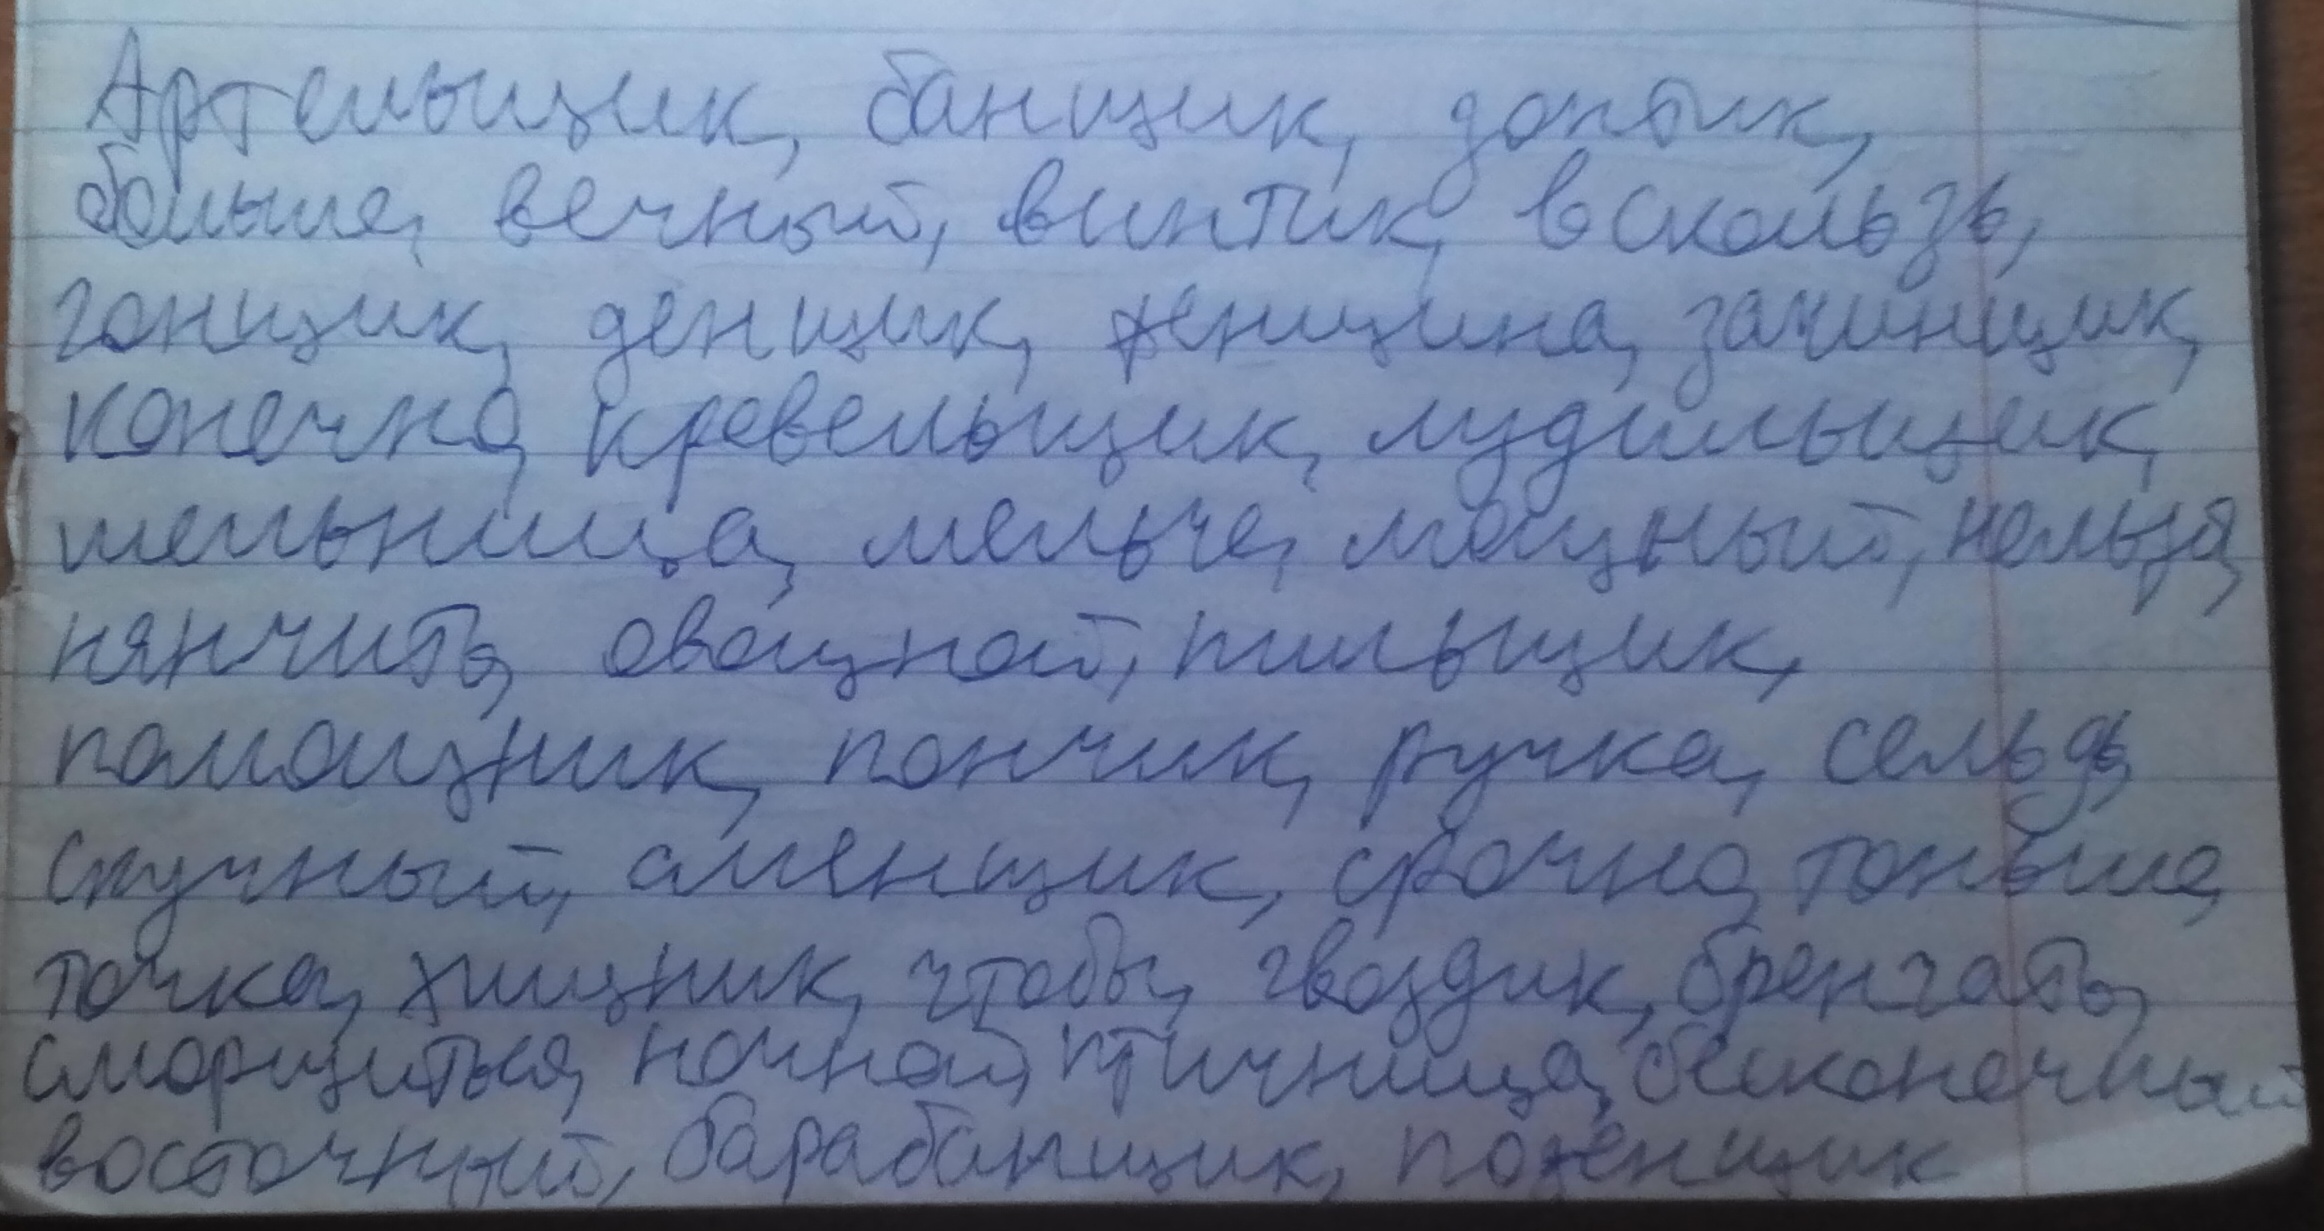 Артельщик, банщик, зонтик,
больше, вечный, винтик, вскользь,
гонщик, денщик, женщина, зачинщик,
конечно, кровельщик, лудильщик,
мельница, мельче, мощный, нельзя,
нянчить, овощной, пильщик,
помощник, пончик, ручка, сельдь,
скучный, сменщик, срочно, тоньше,
точка, хищник, чтобы, гвоздик, бренчать,
сморщиться, ночной, птичница, бесконечный
восточный, барабанщик,